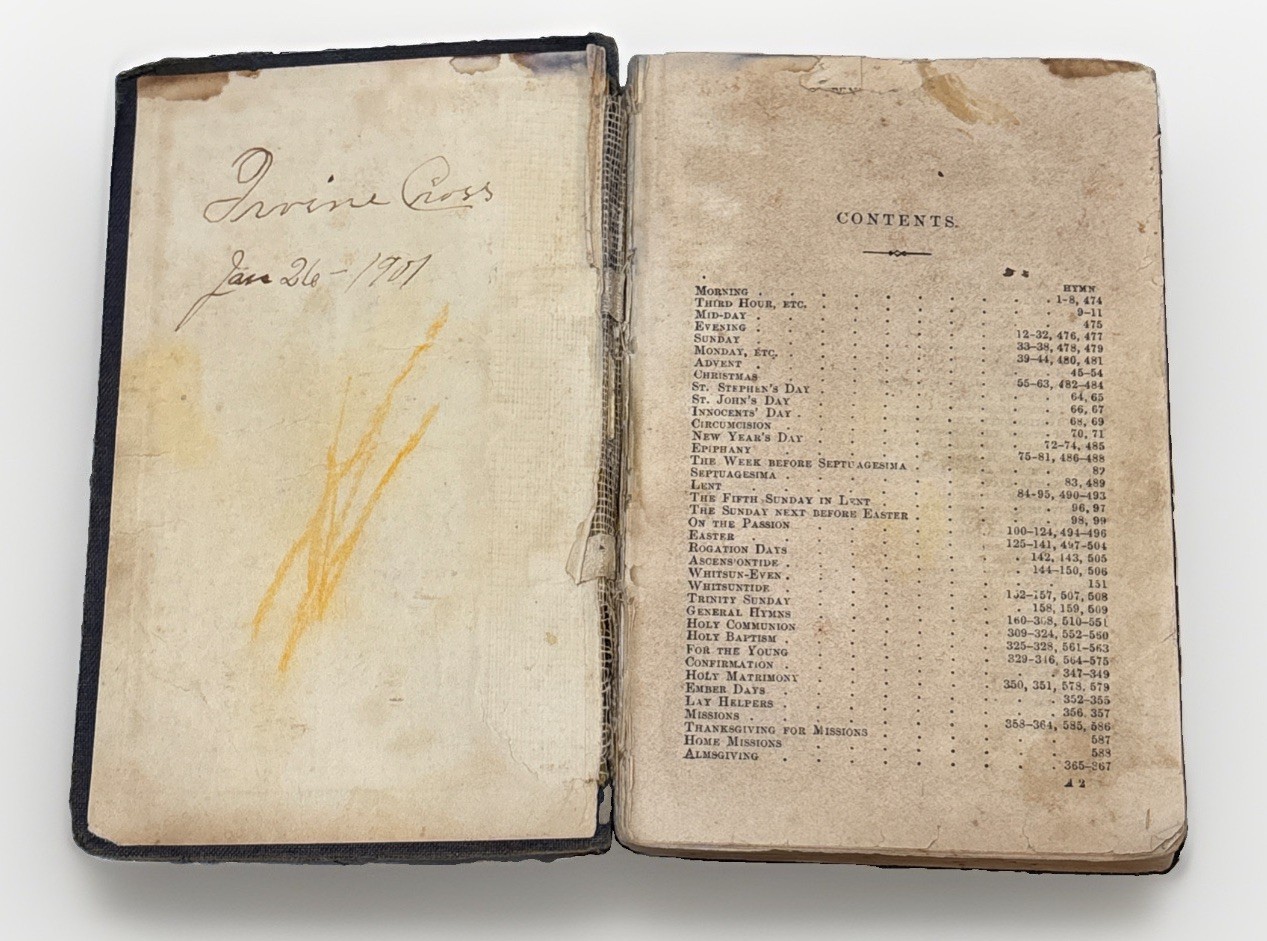 Irvine Cross
Jan 26 - 1901
CONTENTS.
HYMN
MORNING . . . . . . . . . 1–8, 474
THIRD HOUR, ETC. . . . . . . . . 9–11
MID-DAY . . . . . . . . . 475
EVENING . . . . . . . . 12–32, 476, 477
SUNDAY . . . . . . . . 33–38, 478, 479
MONDAY, ETC. . . . . . . . 39–44, 480, 481
ADVENT . . . . . . . . . 45–54
CHRISTMAS . . . . . . . . 55–63, 482–484
ST. STEPHEN'S DAY . . . . . . . . 64, 65
ST. JOHN'S DAY . . . . . . . . 66, 67
INNOCENTS' DAY . . . . . . . . 68, 69
CIRCUMCISION . . . . . . . . 70, 71
NEW YEAR'S DAY . . . . . . . 72–74, 485
EPIPHANY . . . . . . . . 75–81, 486–488
THE WEEK BEFORE SEPTUAGESIMA . . . . . 82
SEPTUAGESIMA . . . . . . . . 83, 489
LENT . . . . . . . . 84–95, 490–493
THE FIFTH SUNDAY IN LENT . . . . . . 96, 97
THE SUNDAY NEXT BEFORE EASTER . . . . . 98, 99
ON THE PASSION . . . . . . 100–124, 494–496
EASTER . . . . . . . 125–141, 497–504
ROGATION DAYS . . . . . . . 142, 143, 505
ASCENSIONTIDE . . . . . . . 144–150, 506
WHITSUN-EVEN . . . . . . . . 151
WHITSUNTIDE . . . . . . . 152–157, 507, 508
TRINITY SUNDAY . . . . . . . 158, 159, 509
GENERAL HYMNS . . . . . . 160–308, 510–551
HOLY COMMUNION . . . . . . 309–324, 552–560
HOLY BAPTISM . . . . . . . 325–328, 561–563
FOR THE YOUNG . . . . . . 329–346, 564–575
CONFIRMATION . . . . . . . . 347–349
HOLY MATRIMONY . . . . . . 350, 351, 578, 579
EMBER DAYS . . . . . . . . 352–355
LAY HELPERS . . . . . . . . 356, 357
MISSIONS . . . . . . . 358–364, 585, 586
THANKSGIVING FOR MISSIONS . . . . . . 587
HOME MISSIONS . . . . . . . . 588
ALMSGIVING . . . . . . . . 365–367
A 2